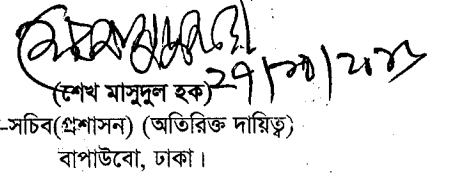 (শেখ মাসুদুল হক)
-সচিব(প্রশাসন) (অতিরিক্ত দায়িত্ব)
বাপাউবো, ঢাকা।